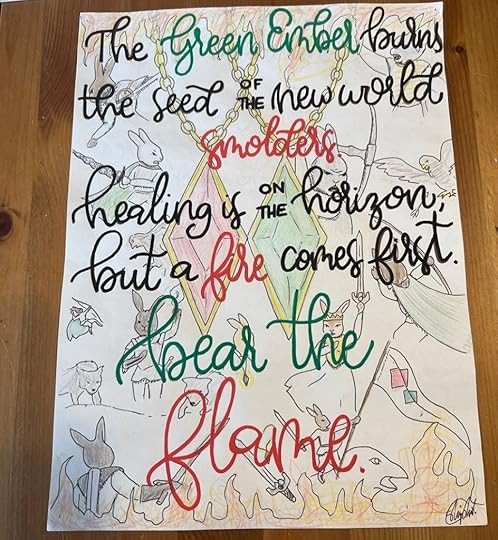 The Green Ember burns
the seed OF THE new world
smolders.
healing is ON THE horizon,
but a fire comes first.
bear the
flame.